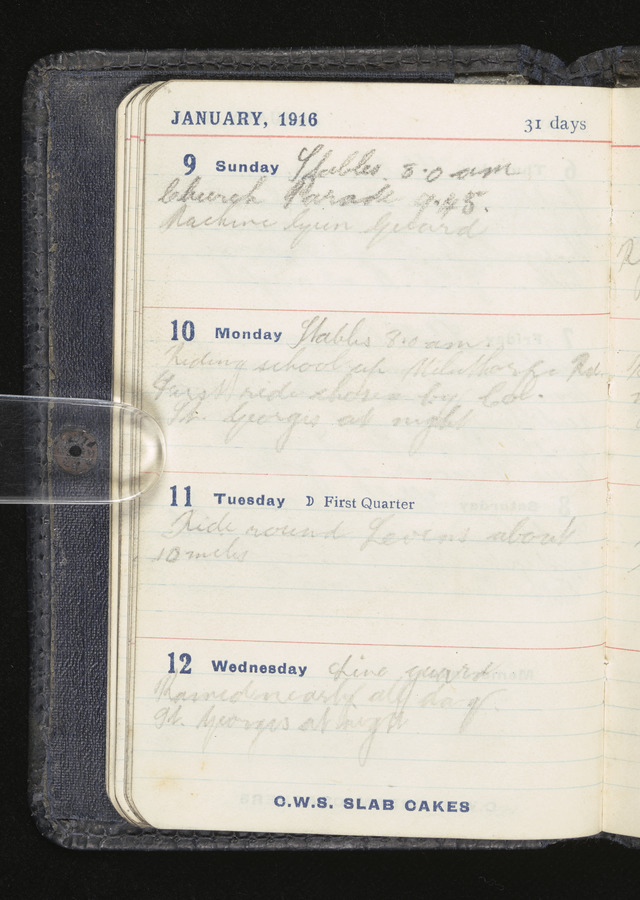 JANUARY, 1916 31 days
9 Sunday Stables 8.0 am
Church Parade 9.45.
Machine Gun Guard
10 Monday Stables 8.0 am
Riding school up Milnthorpe Rd.
First ride chosen by Col.
St. Georges at night
11 Tuesday D First Quarter
Ride round Levens about
10 miles
12 Wednesday Line guard
Rained nearly all day.
St. Georges at night
C.W.S. SLAB CAKES